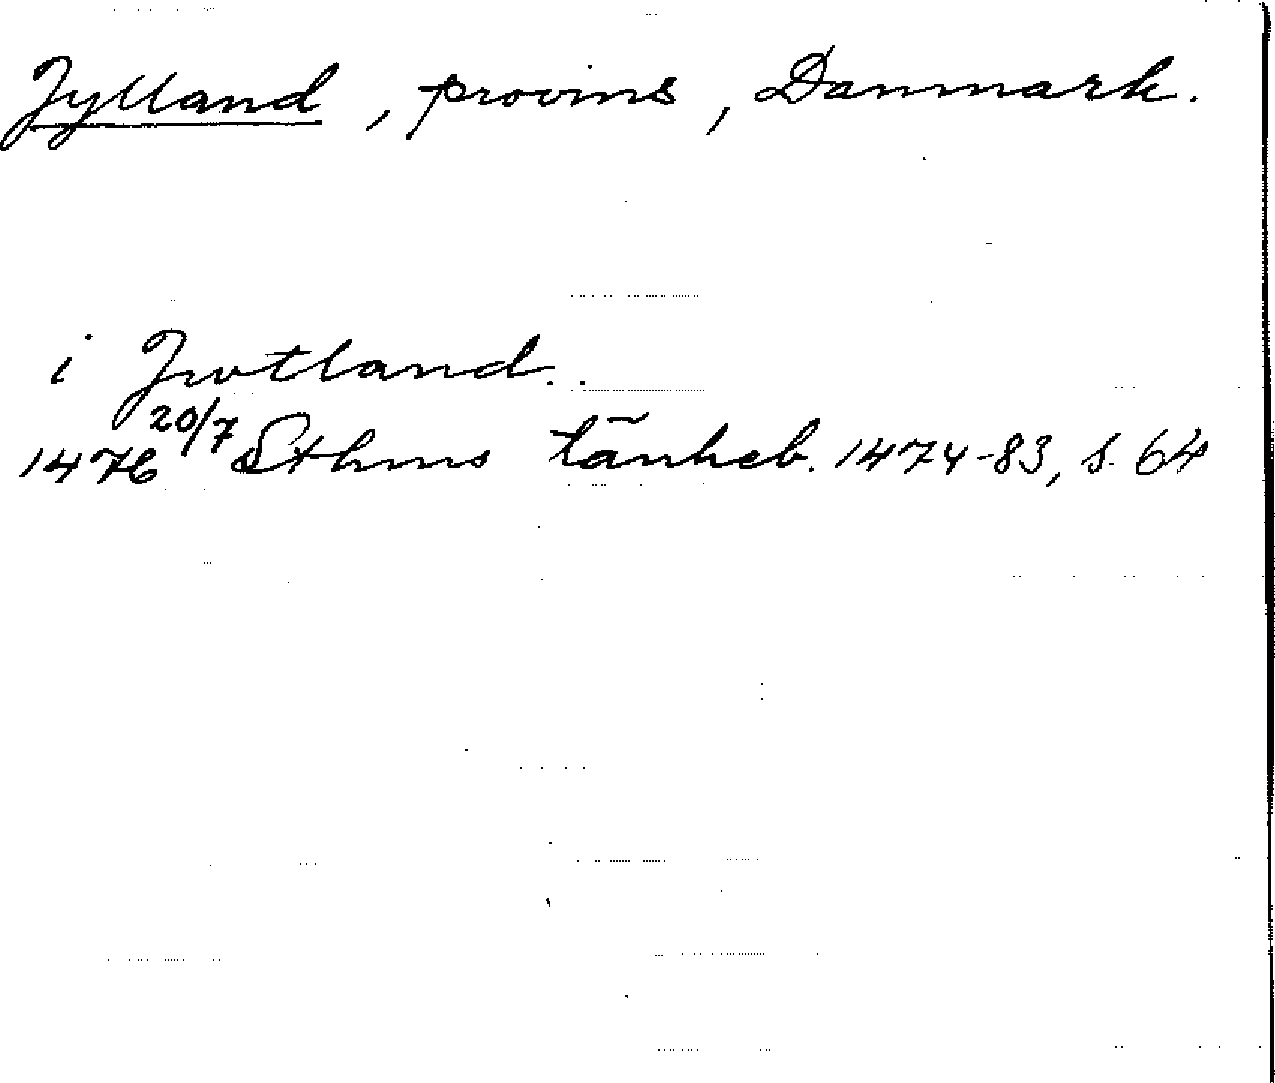 Jylland, provins, Danmark.
i Jwtland.
1476 20/7 Sthms tänkeb. 1474-83, s. 64